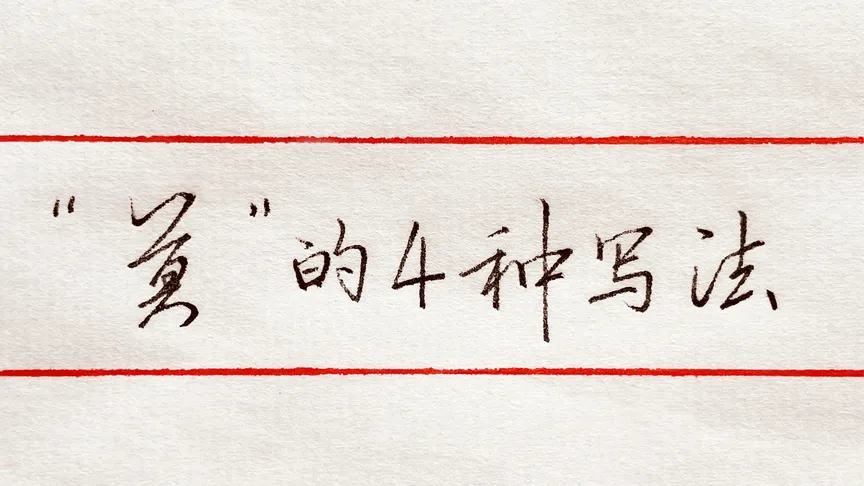 “莫”的4种写法